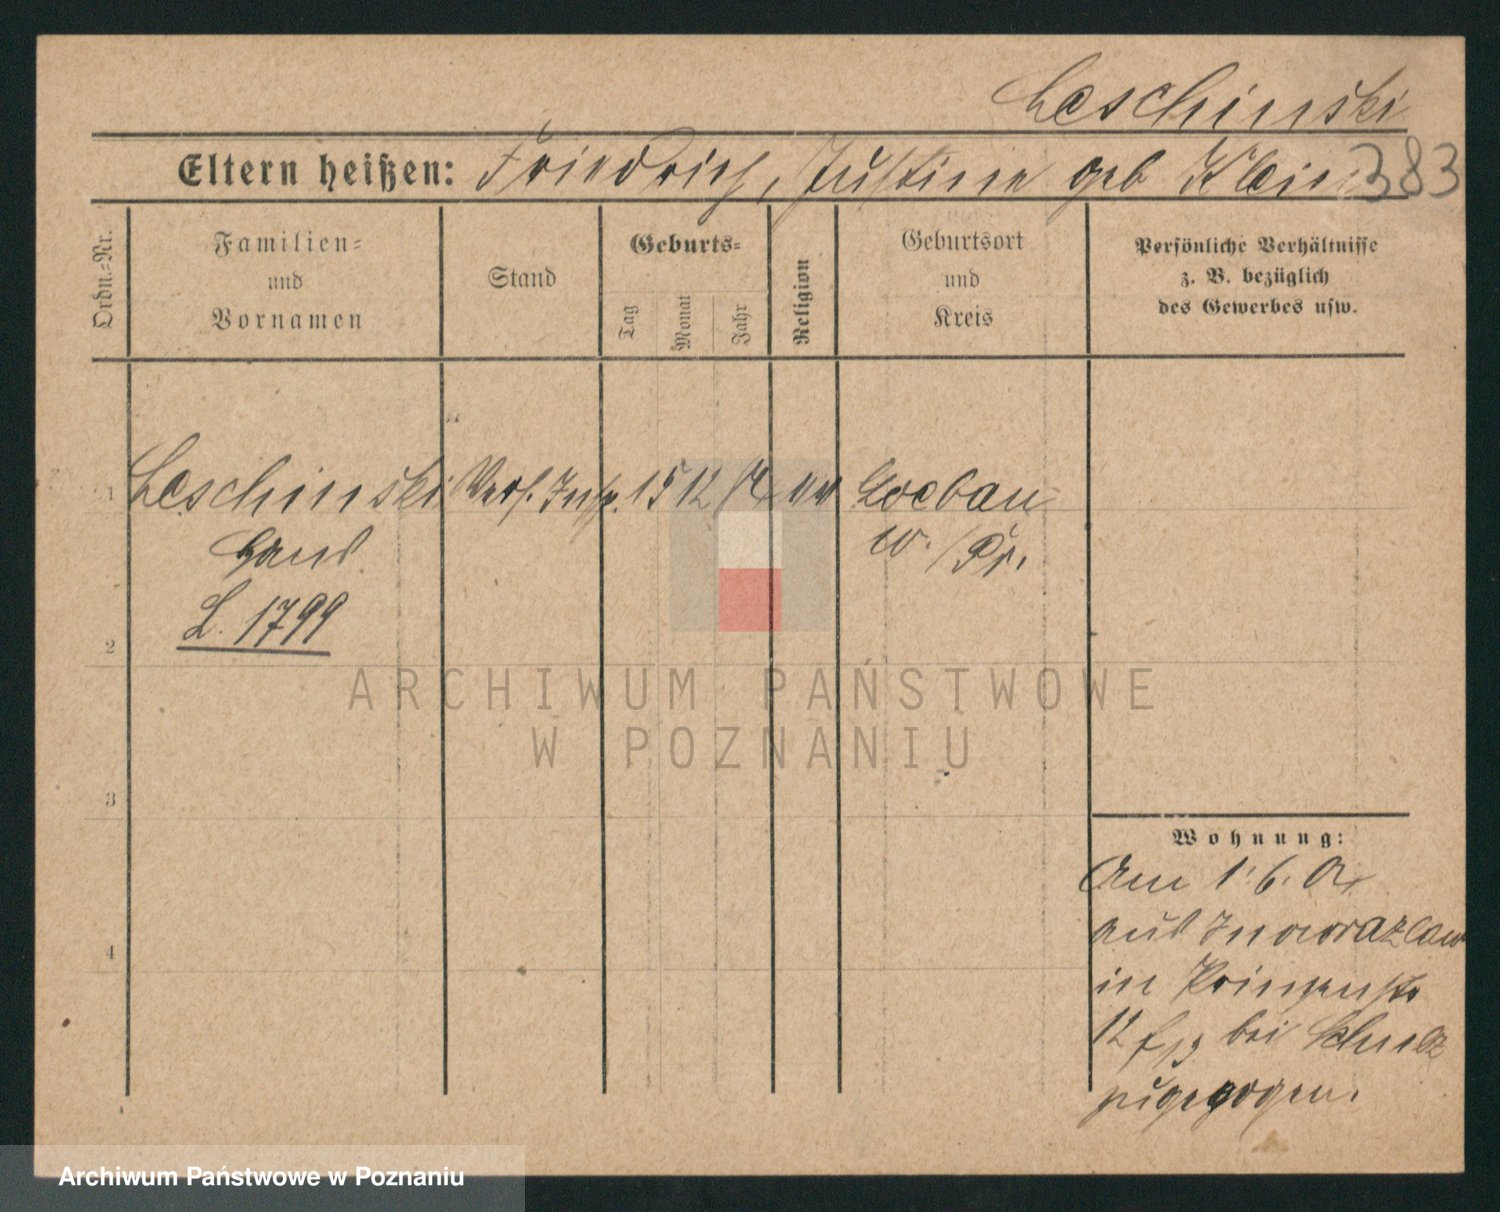 Leschinski
Eltern heißen: Friedrich, Justine geb Klein
383
Ordn.-Nr.
Familien-
und
Vornamen
Stand
Geburts-
Tag
Monat
Jahr
Religion
Geburtsort
und
Kreis
Persönliche Verhältnisse
z. B. bezüglich
des Gewerbes usw.
1
Leschinski Vers. Insp. 15 12 ev Loebau
Hans W./Pr.
L. 1799
2
3
4
Wohnung:
Am 1.6.
aus Inowrazlaw
in Prinzenstr
12 bei Schulz
zugezogen.
ARCHIWUM PAŃSTWOWE
W POZNANIU
Archiwum Państwowe w Poznaniu